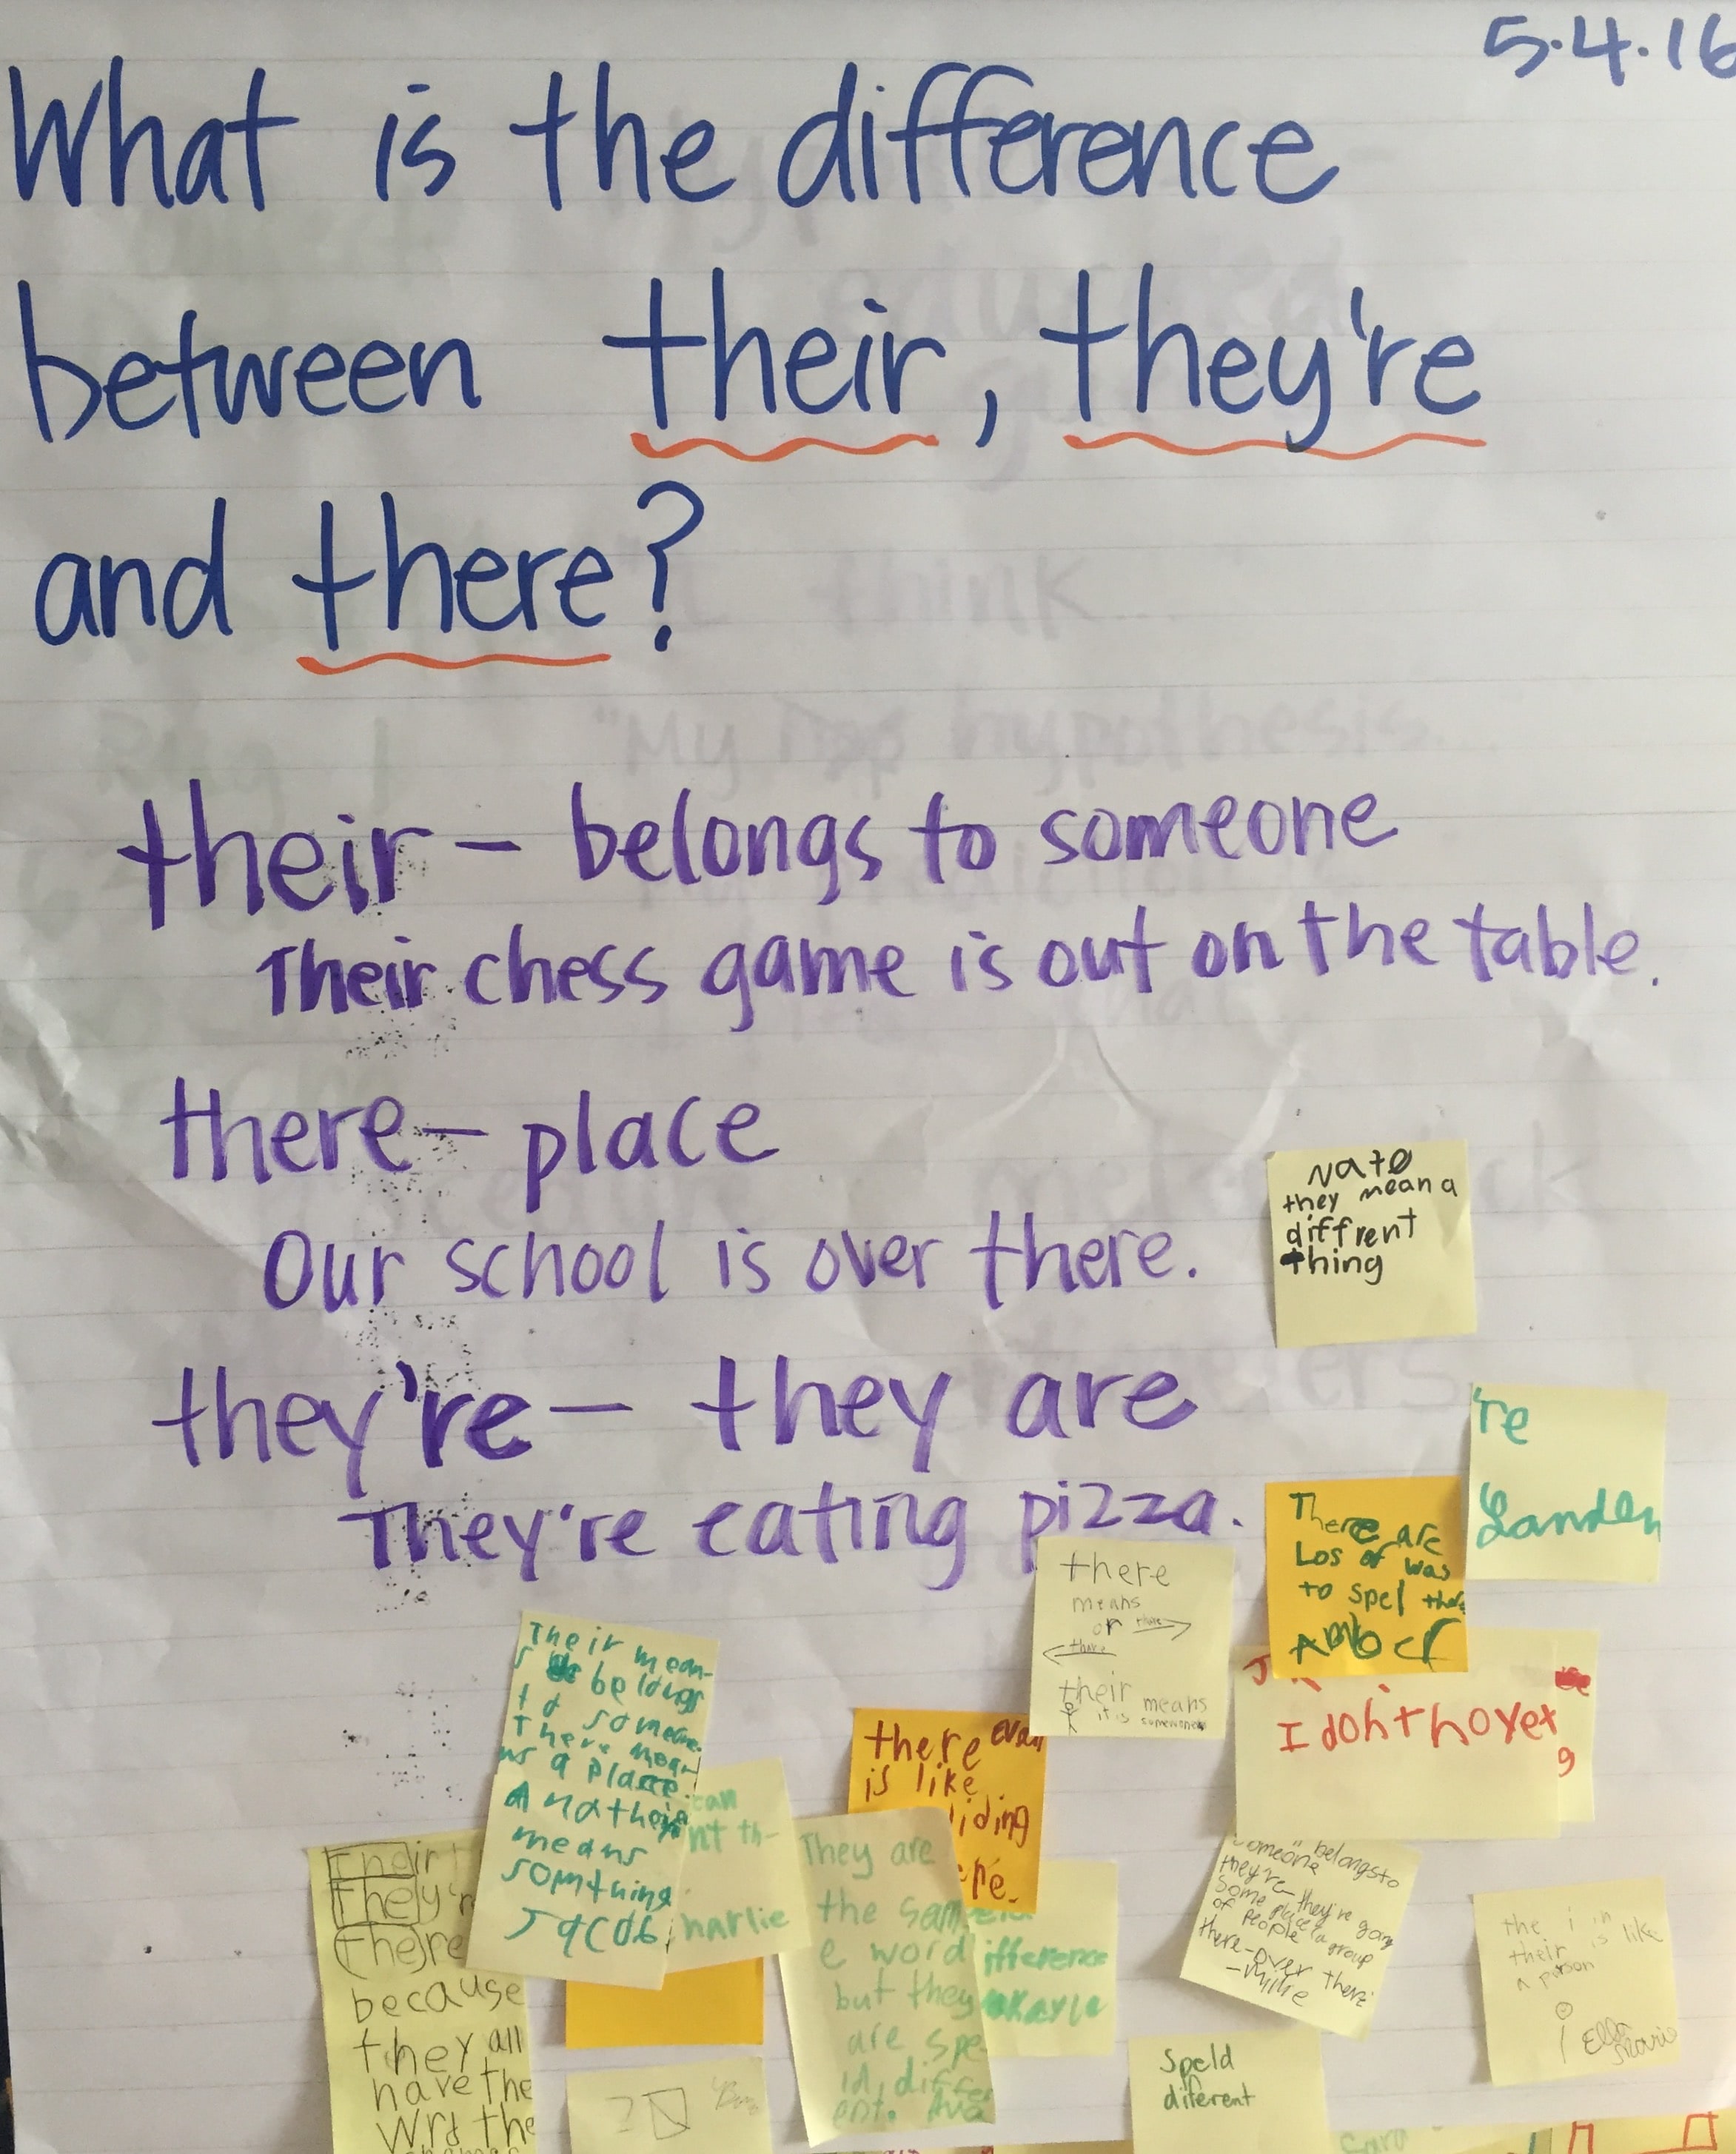 5.4.16
What is the difference
between their, they're
and there?
their - belongs to someone
Their chess game is out on the table.
there - place
Our school is over there.
they're - they are
They're eating pizza.
Nate
they mean a
diffrent
thing
're
Landen
There are
Los of was
to spel
there
means
or there
there
their means
it is
I don't
Their mean-
s belongs
to
There mean
ns a place.
And
means
somthing
Jacob
can
nt th-
harlie
there Evan
is like
iding
ere.
They are
the sam
e word
but they
are spe
ld, differ
ent. Ava
ifference
Kayla
Their
They'r
There
because
they all
have the
Wrd the
someone belongs to
they're - they're going
some place a group
of people
there - over there
- Mike
the i in
their is like
a person
Ella
Marie
Speld
diferent
?
Cara